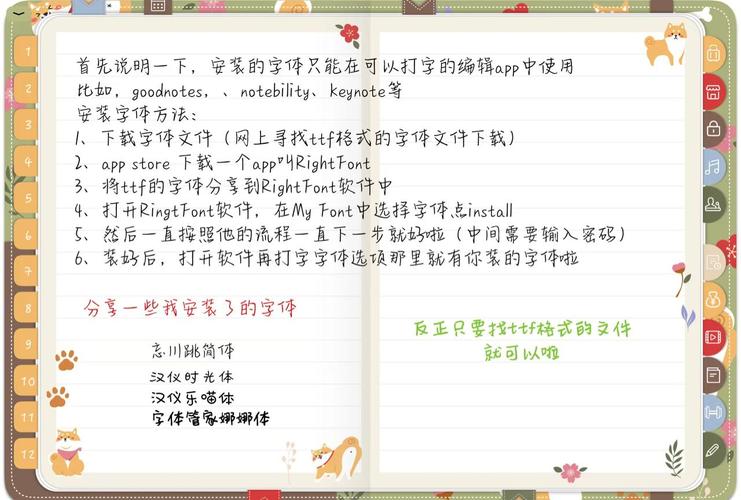 首先说明一下，安装的字体只能在可以打字的编辑app中使用
比如，goodnotes，、notebility、keynote等
安装字体方法：
1、下载字体文件（网上寻找ttf格式的字体文件下载）
2、app store 下载一个app叫RightFont
3、将ttf的字体分享到RightFont软件中
4、打开RingtFont软件，在My Font中选择字体点install
5、然后一直按照他的流程一直下一步就好啦（中间需要输入密码）
6、装好后，打开软件再打字字体选项那里就有你装的字体啦
分享一些我安装了的字体
忘川跳简体
汉仪时光体
汉仪乐喵体
字体管家娜娜体
反正只要找ttf格式的文件
就可以啦
1
2
3
4
5
6
7
8
9
10
11
12